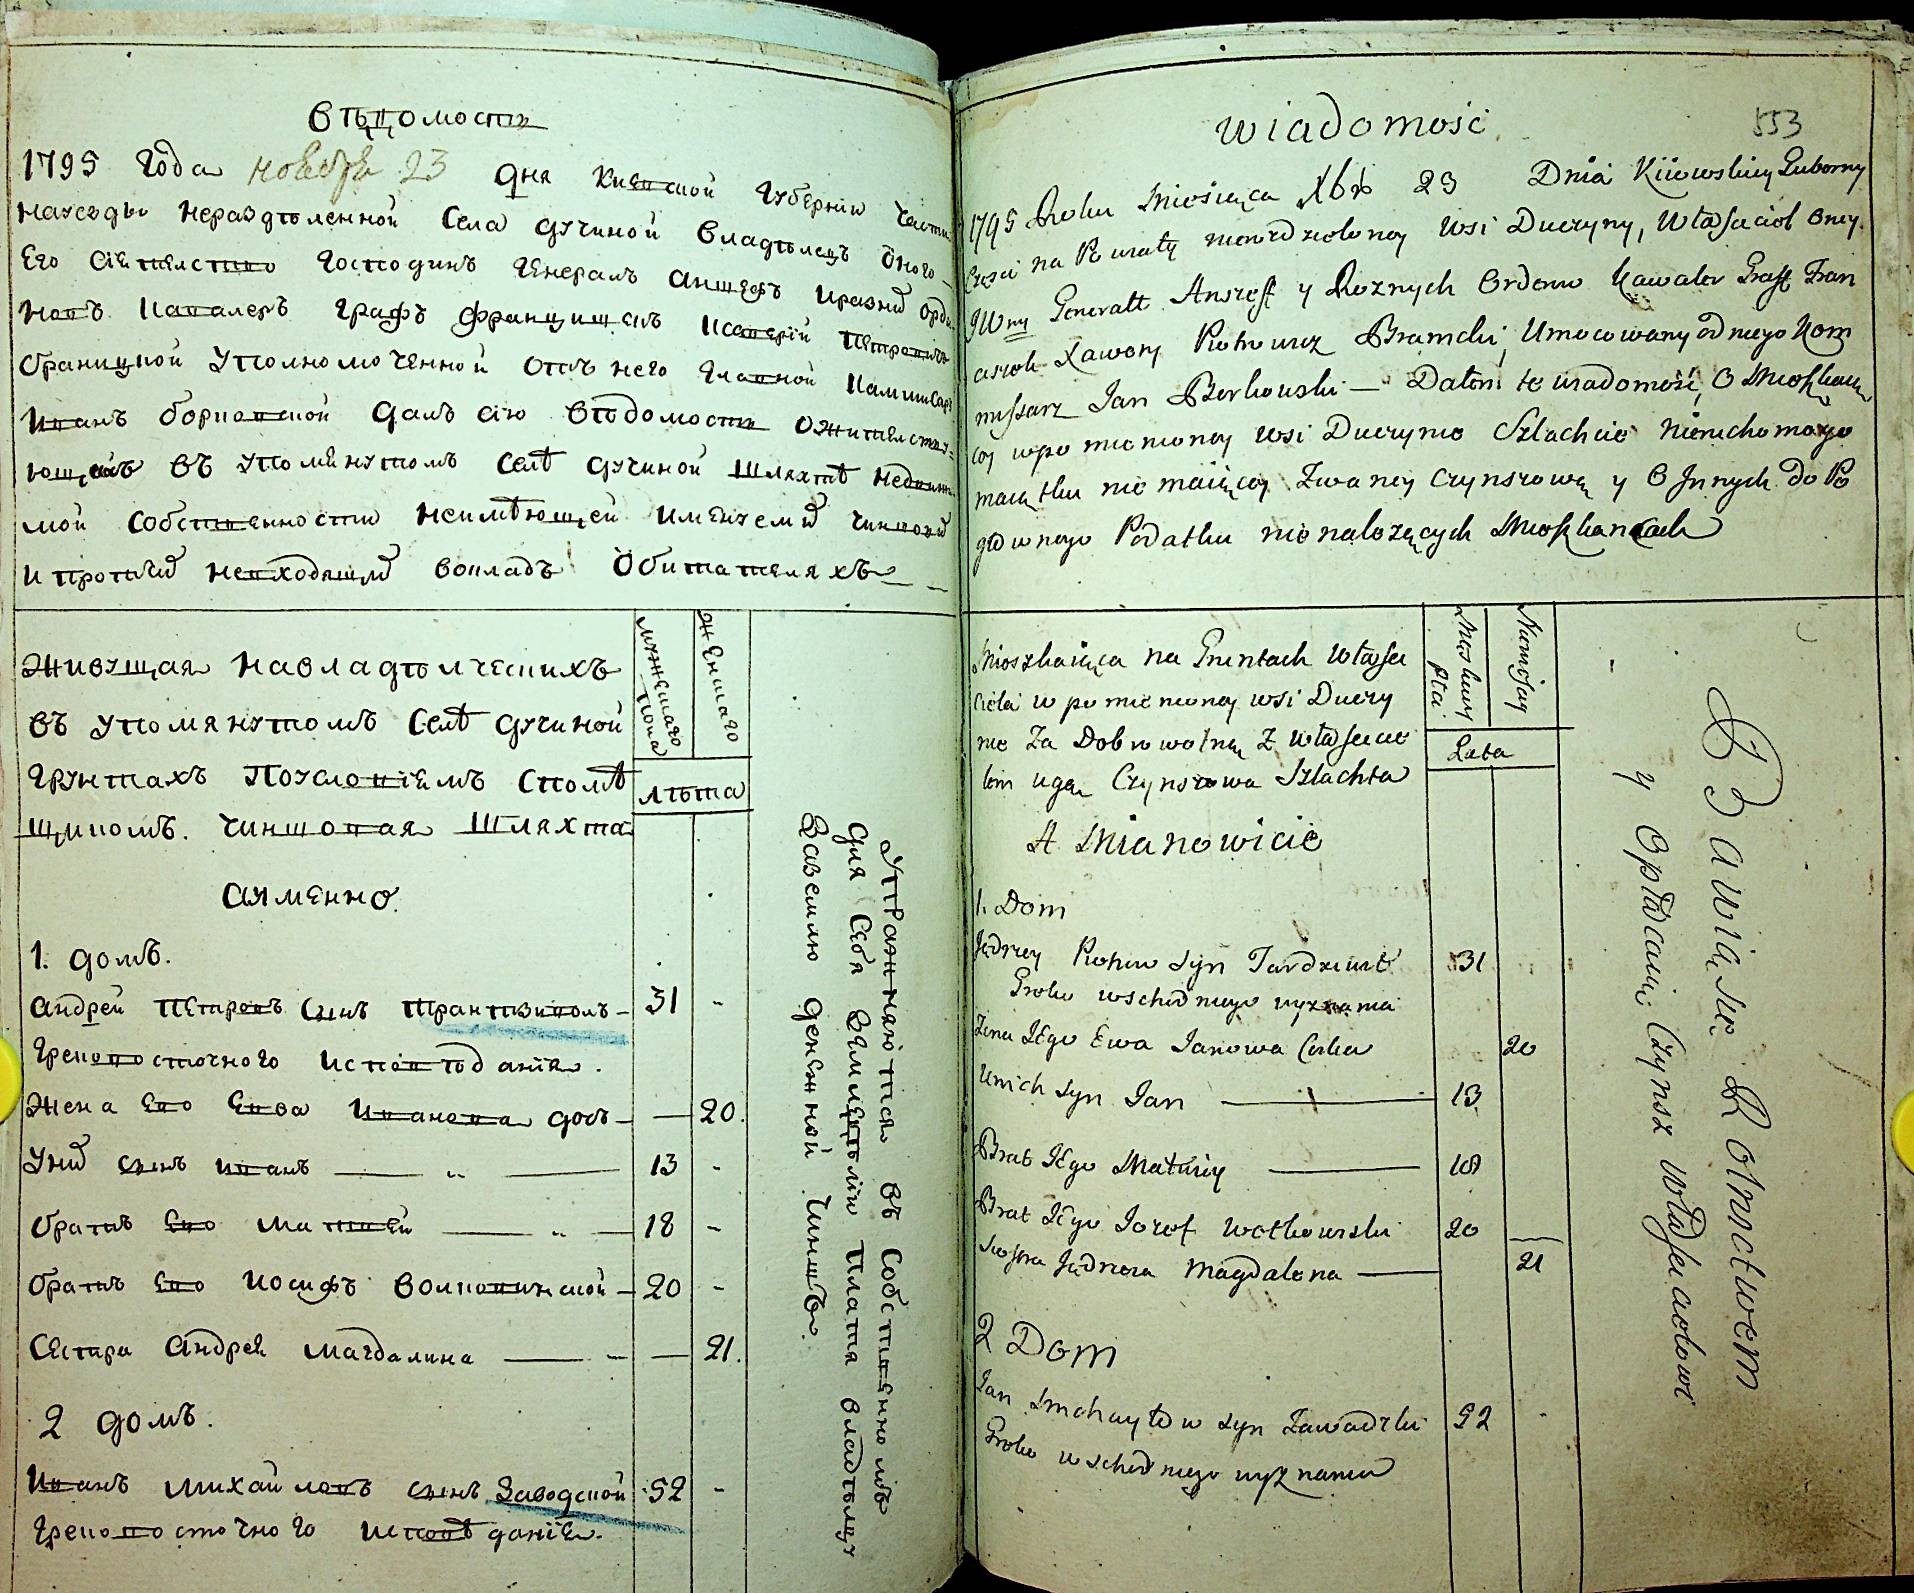 Вѣдомость
1795 года ноября 23 дня Киевской губернии части
Его Сіятельство Господинъ Генералъ Аншефъ и разных Орде
новъ Кавалеръ Графъ Францишекъ Ксаверій Петровичъ
Браницкой Уполномоченной отъ него главной Коммисаръ
Иванъ борковской далъ сію вѣдомость о жительству
ющей въ упомянутомъ селѣ дучиной шляхтѣ недвижи
мой собственности неимѣющей именуемой чиншовой
и протчих невходящих вокладъ обитателяхъ
Живущая на владѣлческихъ
въ упомянутомъ Селѣ дучиной
грунтахъ По условіемъ с помѣ
щикомъ. чиншовая шляхта
а именно.
мужеска пола
женшаго
лѣта
1. домъ.
Андрей Петровъ сынъ 31 -
грековосточного исповѣданія.
Жена его Евва Иванова дочь — 20.
У них сынъ иванъ 13 -
братъ его Матвей 18 -
братъ его Иосифъ волковинской 20 -
Сестра Андрея Магдалина — 21.
2 домъ.
Иванъ михайловъ сынъ Заводской 52 -
грековосточного исповѣданія.
Упражняются въ собственномъ
для себя земледѣліи платя владѣльцу
За землю денежной Чиншъ.
wiadomość
553
1795 Roku Miesiąca Xbra 23 Dnia Kiiowskiey Guberny
Części na Powiaty nierozdzieloney Wsi Duczyny, Właściciel Oney
JWny Generall Anszeff y Roznych Orderow Kawaler Graff Fran
ciszek Xawery Piotrowicz Branicki, Umocowany od niego Kom
missarz Jan Borkowski — Datem te wiadomość, O Mieszkaią
cey wpomienioney wsi Duczynie Szlachcie Nieruchomego
maiątku nie maiącey Zwaney Czynszową y O Innych do Po
głownego Podatku nienależących Mieszkańcach
Mieszkaiąca na Gruntach Właści
ciela w pomienioney wsi Duczy
nie Za Dobrowolną Z właścicie
lem ugodą Czynszowa Szlachta
A Mianowicie
Męskiey płci
Niewiesciey
Lata
1. Dom
Jędrzey Piotrow Syn 31
Greko wschodniego wyznania
Zona Jego Ewa Janowa Corka 20
U nich syn Jan 13
Brat Jego Matwiey 18
Brat Jego Jozef Wołkowski 20
Siostra Jędrzeia Magdalena 21
2 Dom
Jan Michayłow syn Zawadzki 52
Greko wschodniego wyznania
Bawią się Rolnictwem
y Opłacaią Czynsz właścicielowi